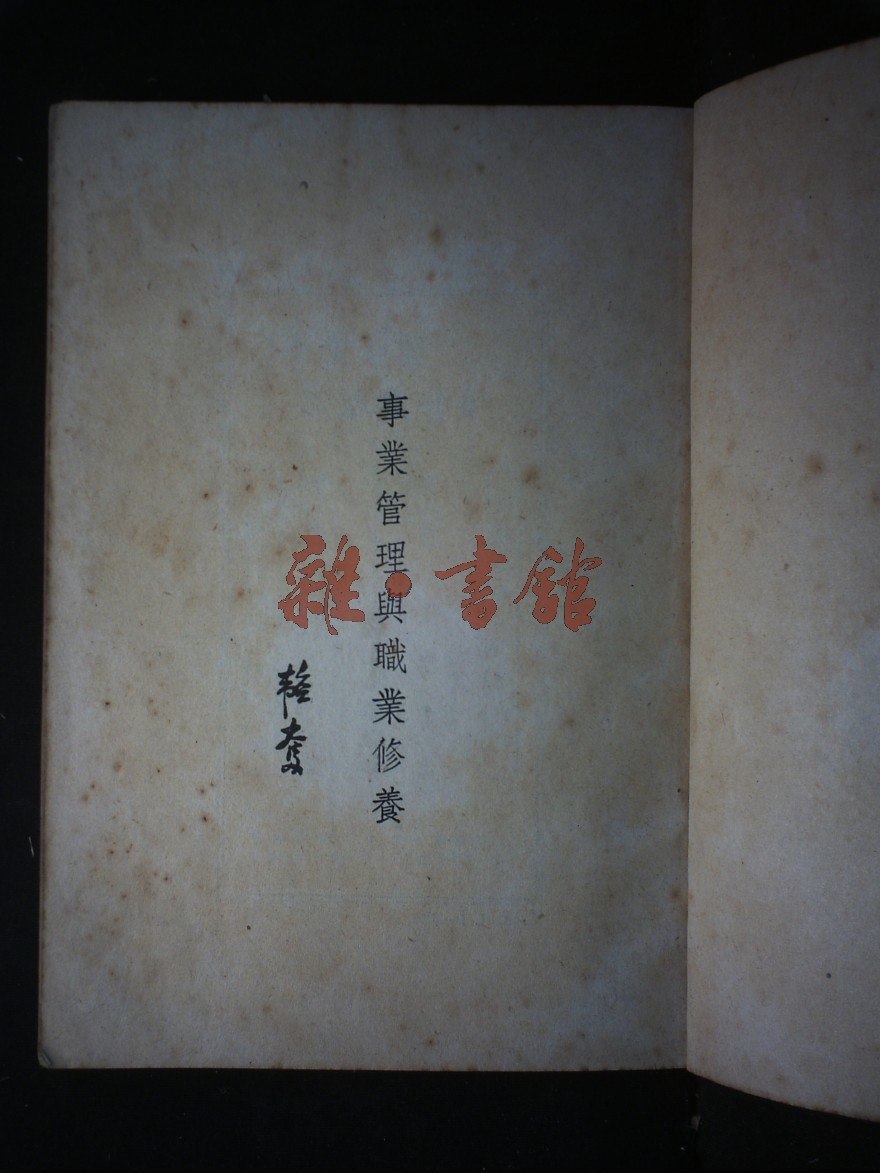 事業管理與職業修養
韜奮
雜·書館